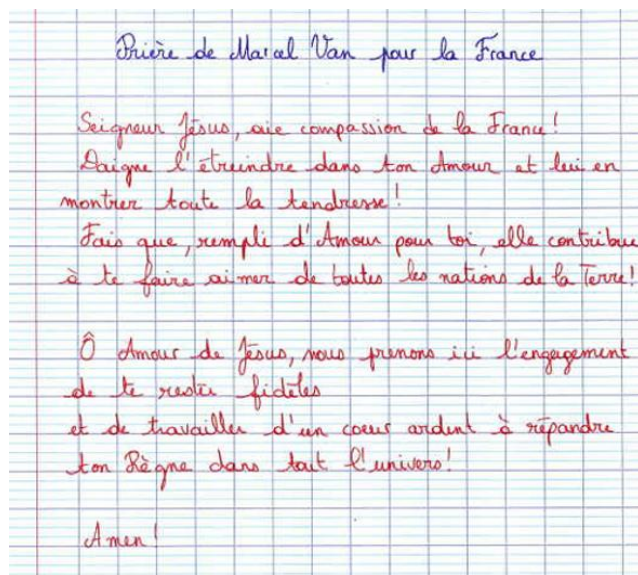 Prière de Marcel Van pour la France
Seigneur Jésus, aie compassion de la France!
Daigne l'étreindre dans ton Amour et lui en
montrer toute la tendresse!
Fais que, rempli d'Amour pour toi, elle contribue
à te faire aimer de toutes les nations de la Terre!
Ô Amour de Jésus, nous prenons ici l'engagement
de te rester fidèles
et de travailler d'un coeur ardent à répandre
ton Règne dans tout l'univers!
Amen!